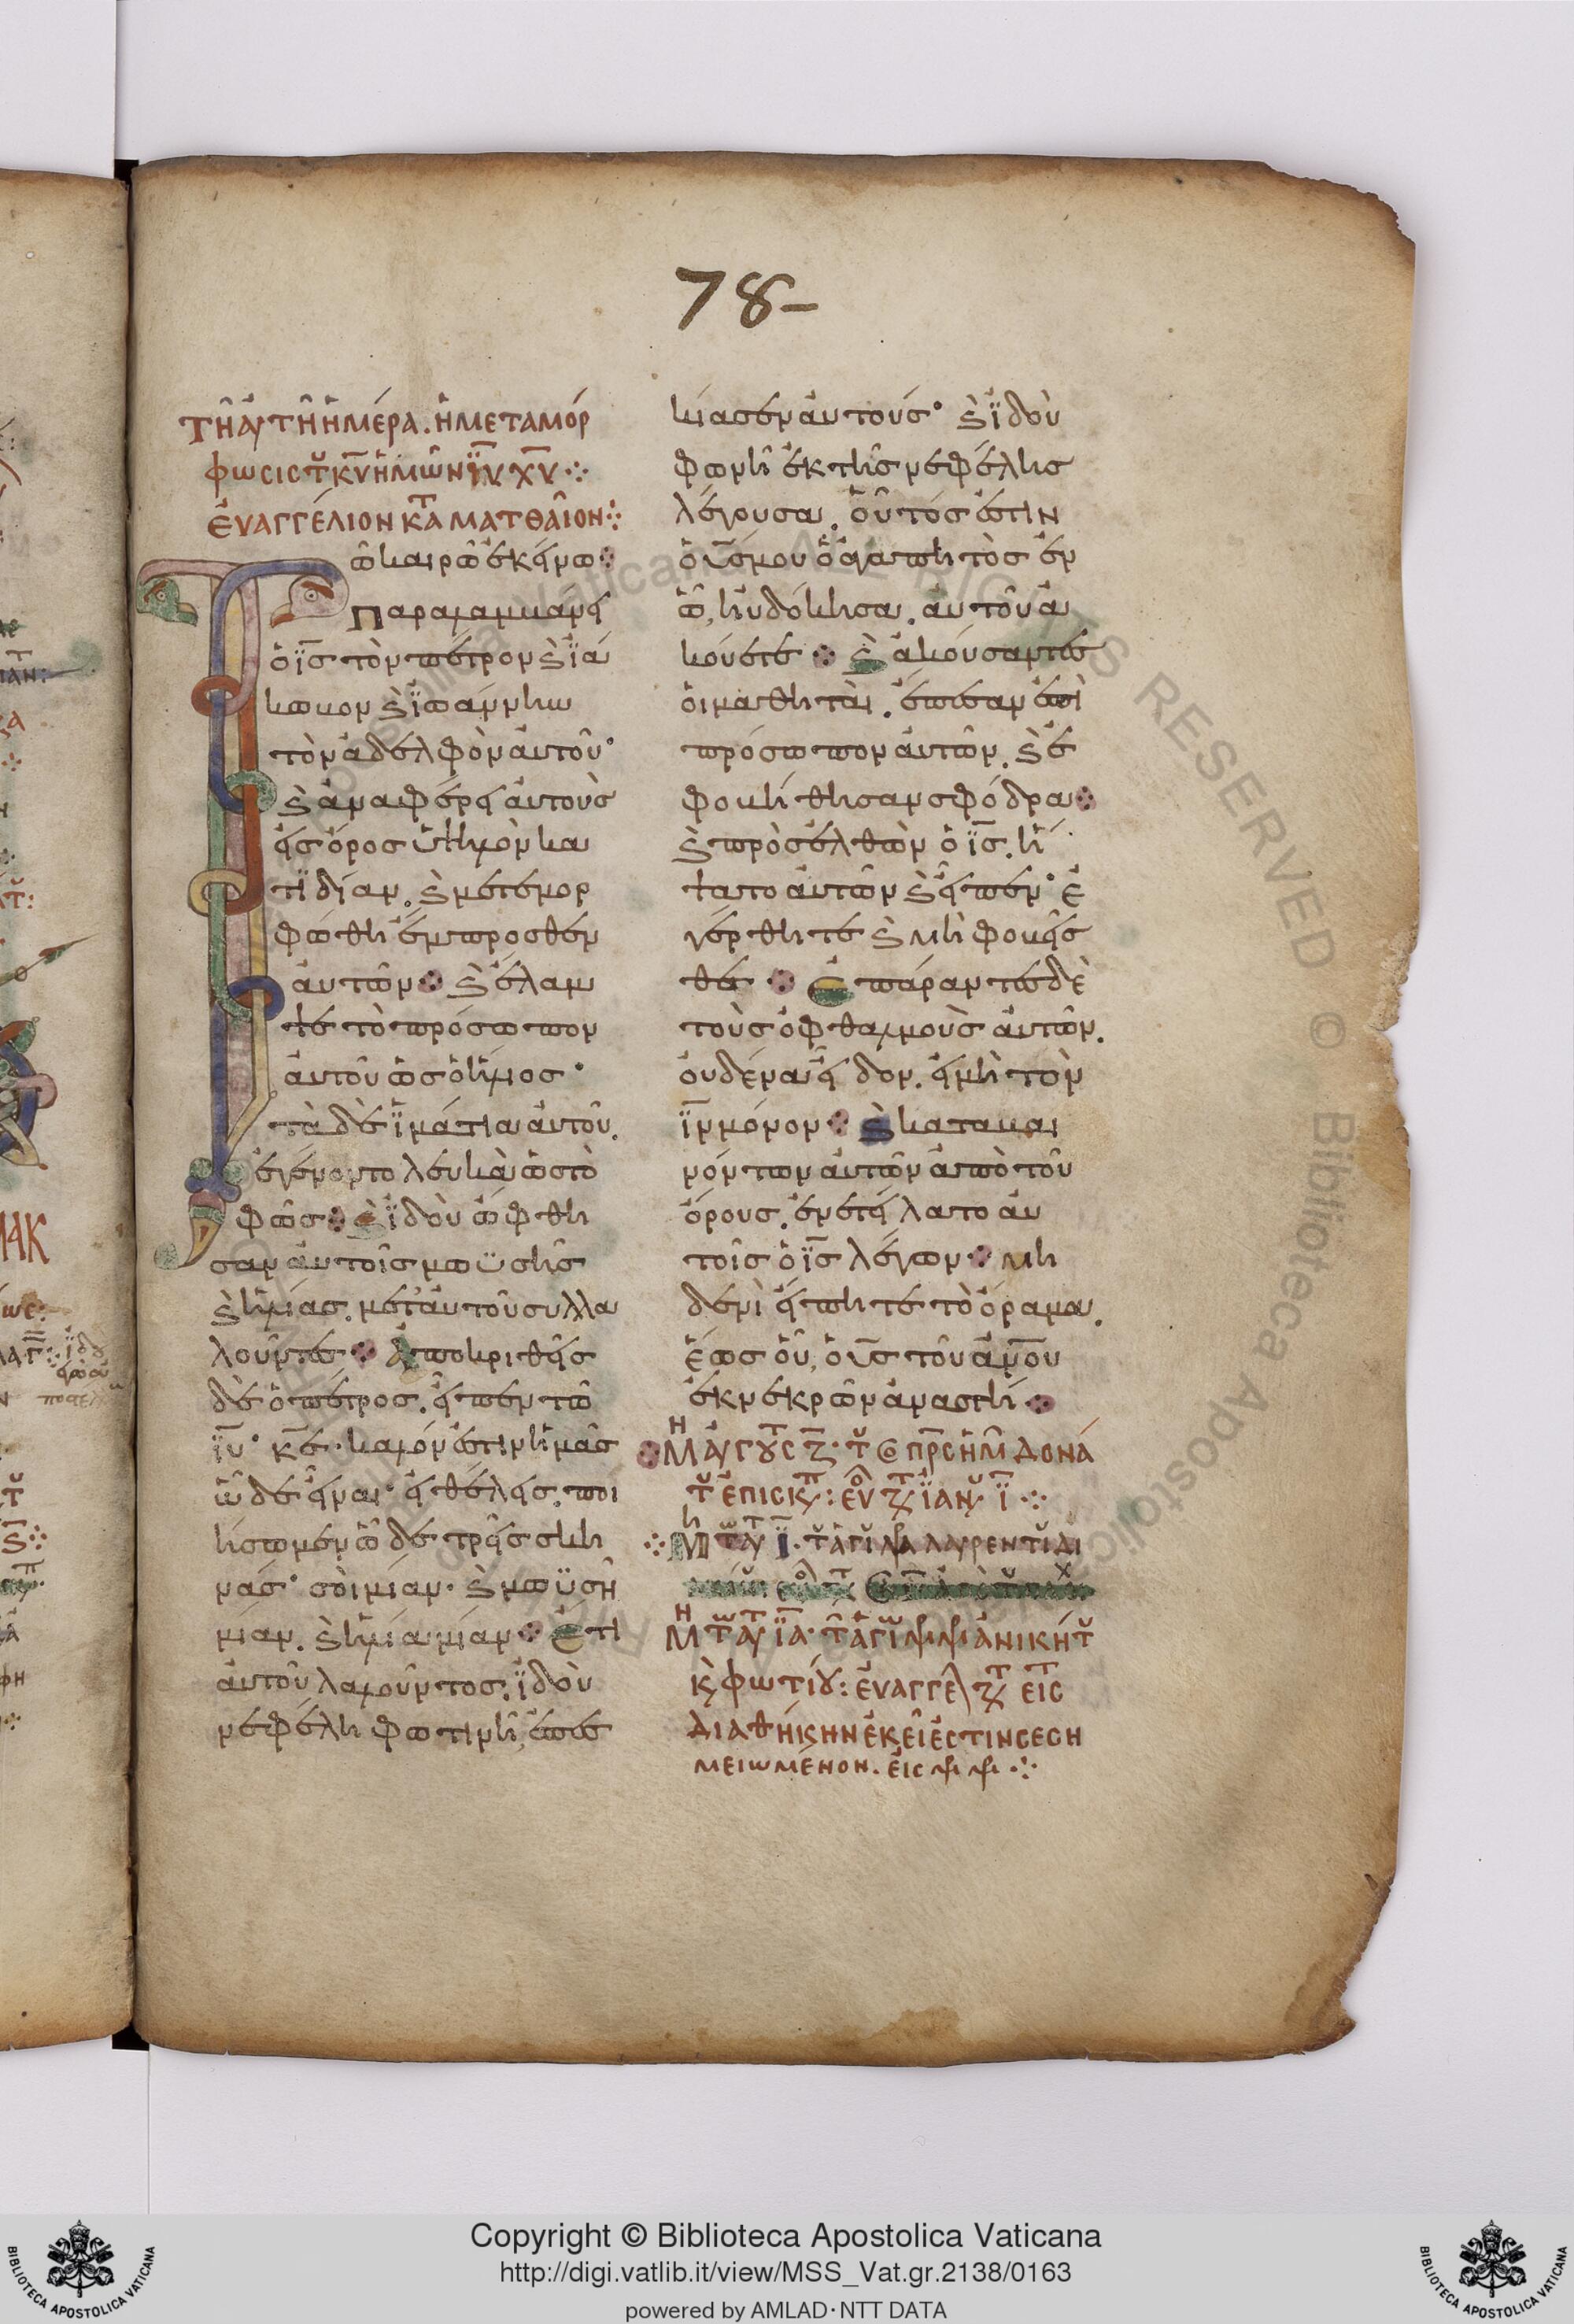 78-
ΤΗ͂ ΑΥΤΗ͂ ΗΜΕΡΑ. Η ΜΕΤΑΜΟΡ
ΦΩCΙC Τ͂ Κ͞Υ ΗΜΩ͂Ν Ι͞Υ Χ͞Υ ⁘
ΕΥΑΓΓΕΛΙΟΝ ΚΑΤ ΜΑΤΘΑΙΟΝ ⁘
Τῶ καιρῶ ἐκείνω ⁘
παραλαμβάνει
ὁ ι͞ς τὸν πέτρον ϗ ἰά
κωβον ϗ ἰωάννην
τὸν ἀδελφὸν αὐτοῦ·
ϗ ἀναφέρει αὐτοὺς
εἰς ὄρος ὑψηλὸν κα
τιδίαν. ϗ μετεμορ
φώθη ἔμπροσθεν
αὐτῶν ⁘ ϗ ἔλαμ
ψε τὸ πρόσωπον
αὐτοῦ ὡς ὁ ἥλιος·
τὰ δὲ ἱμάτια αὐτοῦ.
ἐγένοντο λευκὰ ὡς τὸ
φῶς ⁘ ϗ ἰδοὺ ὤφθη
σαν αὐτοῖς μωϋσῆς
ϗ ἠλίας. μετ' αὐτοῦ συλλα
λοῦντες ⁘ Ἀποκριθεὶς
δὲ ὁ πέτρος. εἶπεν τῶ
ι͞υ· κ͞ε. καλόν ἐστιν ἡμᾶς
ὧδε εἶναι· εἰ θέλεις. ποι
ήσωμεν ὧδε τρεῖς σκη
νάς· σοὶ μίαν. ϗ μωϋσῆ
μίαν. ϗ ἠλία μίαν ⁘ Ἔτι
αὐτοῦ λαλοῦντος. ἰδοὺ
νεφέλη φωτινὴ, ἐπεσ
κίασεν αὐτούς· ϗ ἰδοὺ
φωνὴ ἐκ τῆς νεφέλης
λέγουσα. οὗτός ἐστιν
ὁ υ͞ς μου ὁ ἀγαπητὸς ἐν
ὧ, ηὐδόκησα. αὐτοῦ ἀ
κούετε ⁘ ϗ ἀκούσαντες
οἱ μαθηταὶ. ἔπεσαν ἐπὶ
πρόσωπον αὐτῶν. ϗ ἐ
φοβήθησαν σφόδρα ⁘
ϗ προσελθὼν ὁ ι͞ς. ἥ
ψατο αὐτῶν ϗ εἶπεν· ἐ
γέρθητε ϗ μὴ φοβεῖσ
θε ⁘ Ἐπάραντες δὲ
τοὺς ὀφθαλμοὺς αὐτῶν.
οὐδένα εἶδον. εἰ μὴ τὸν
ι͞ν μόνον ⁘ ϗ καταβαι
νόντων αὐτῶν ἀπὸ τοῦ
ὄρους. ἐνετείλατο αὐ
τοῖς ὁ ι͞ς λέγων ⁘ μη
δενὶ εἴπητε τὸ ὅραμα.
ἕως οὗ, ὁ υ͞ς τοῦ ἀ͞νου
ἐκ νεκρῶν ἀναστῆ ⁘
ΜΗ ΑΥΓΟΥCΤ Ζ. Τ ΟCΠΡC ΗΜ ΔΟΝΑ
Τ ΕΠΙCΚΠ: ΕΥ ΖΤ ΙΑΝ Ι ⁘
⁘ ΜΗ ΤΩ ΑΥΤ Ι. Τ ΑΓΙ ΛΑΥΡΕΝΤΙ ΔΙ
ΜΗ ΤΩ ΑΥΤ ΙΑ. Τ ΑΓΙΩ ΑΝΙΚΗΤ
Κ ΦΩΤΙΟΥ: ΕΥΑΓΓΕΛ ΖΤ ΕΙC
ΔΙΑΘΗΚΗΝ ΕΚΕΙ ΕCΤΙΝ CΕCΗ
ΜΕΙΩΜΕΝΟΝ. ΕΙC ⁘
Copyright © Biblioteca Apostolica Vaticana
http://digi.vatlib.it/view/MSS_Vat.gr.2138/0163
powered by AMLAD·NTT DATA
BIBLIOTECA APOSTOLICA VATICANA
BIBLIOTECA APOSTOLICA VATICANA